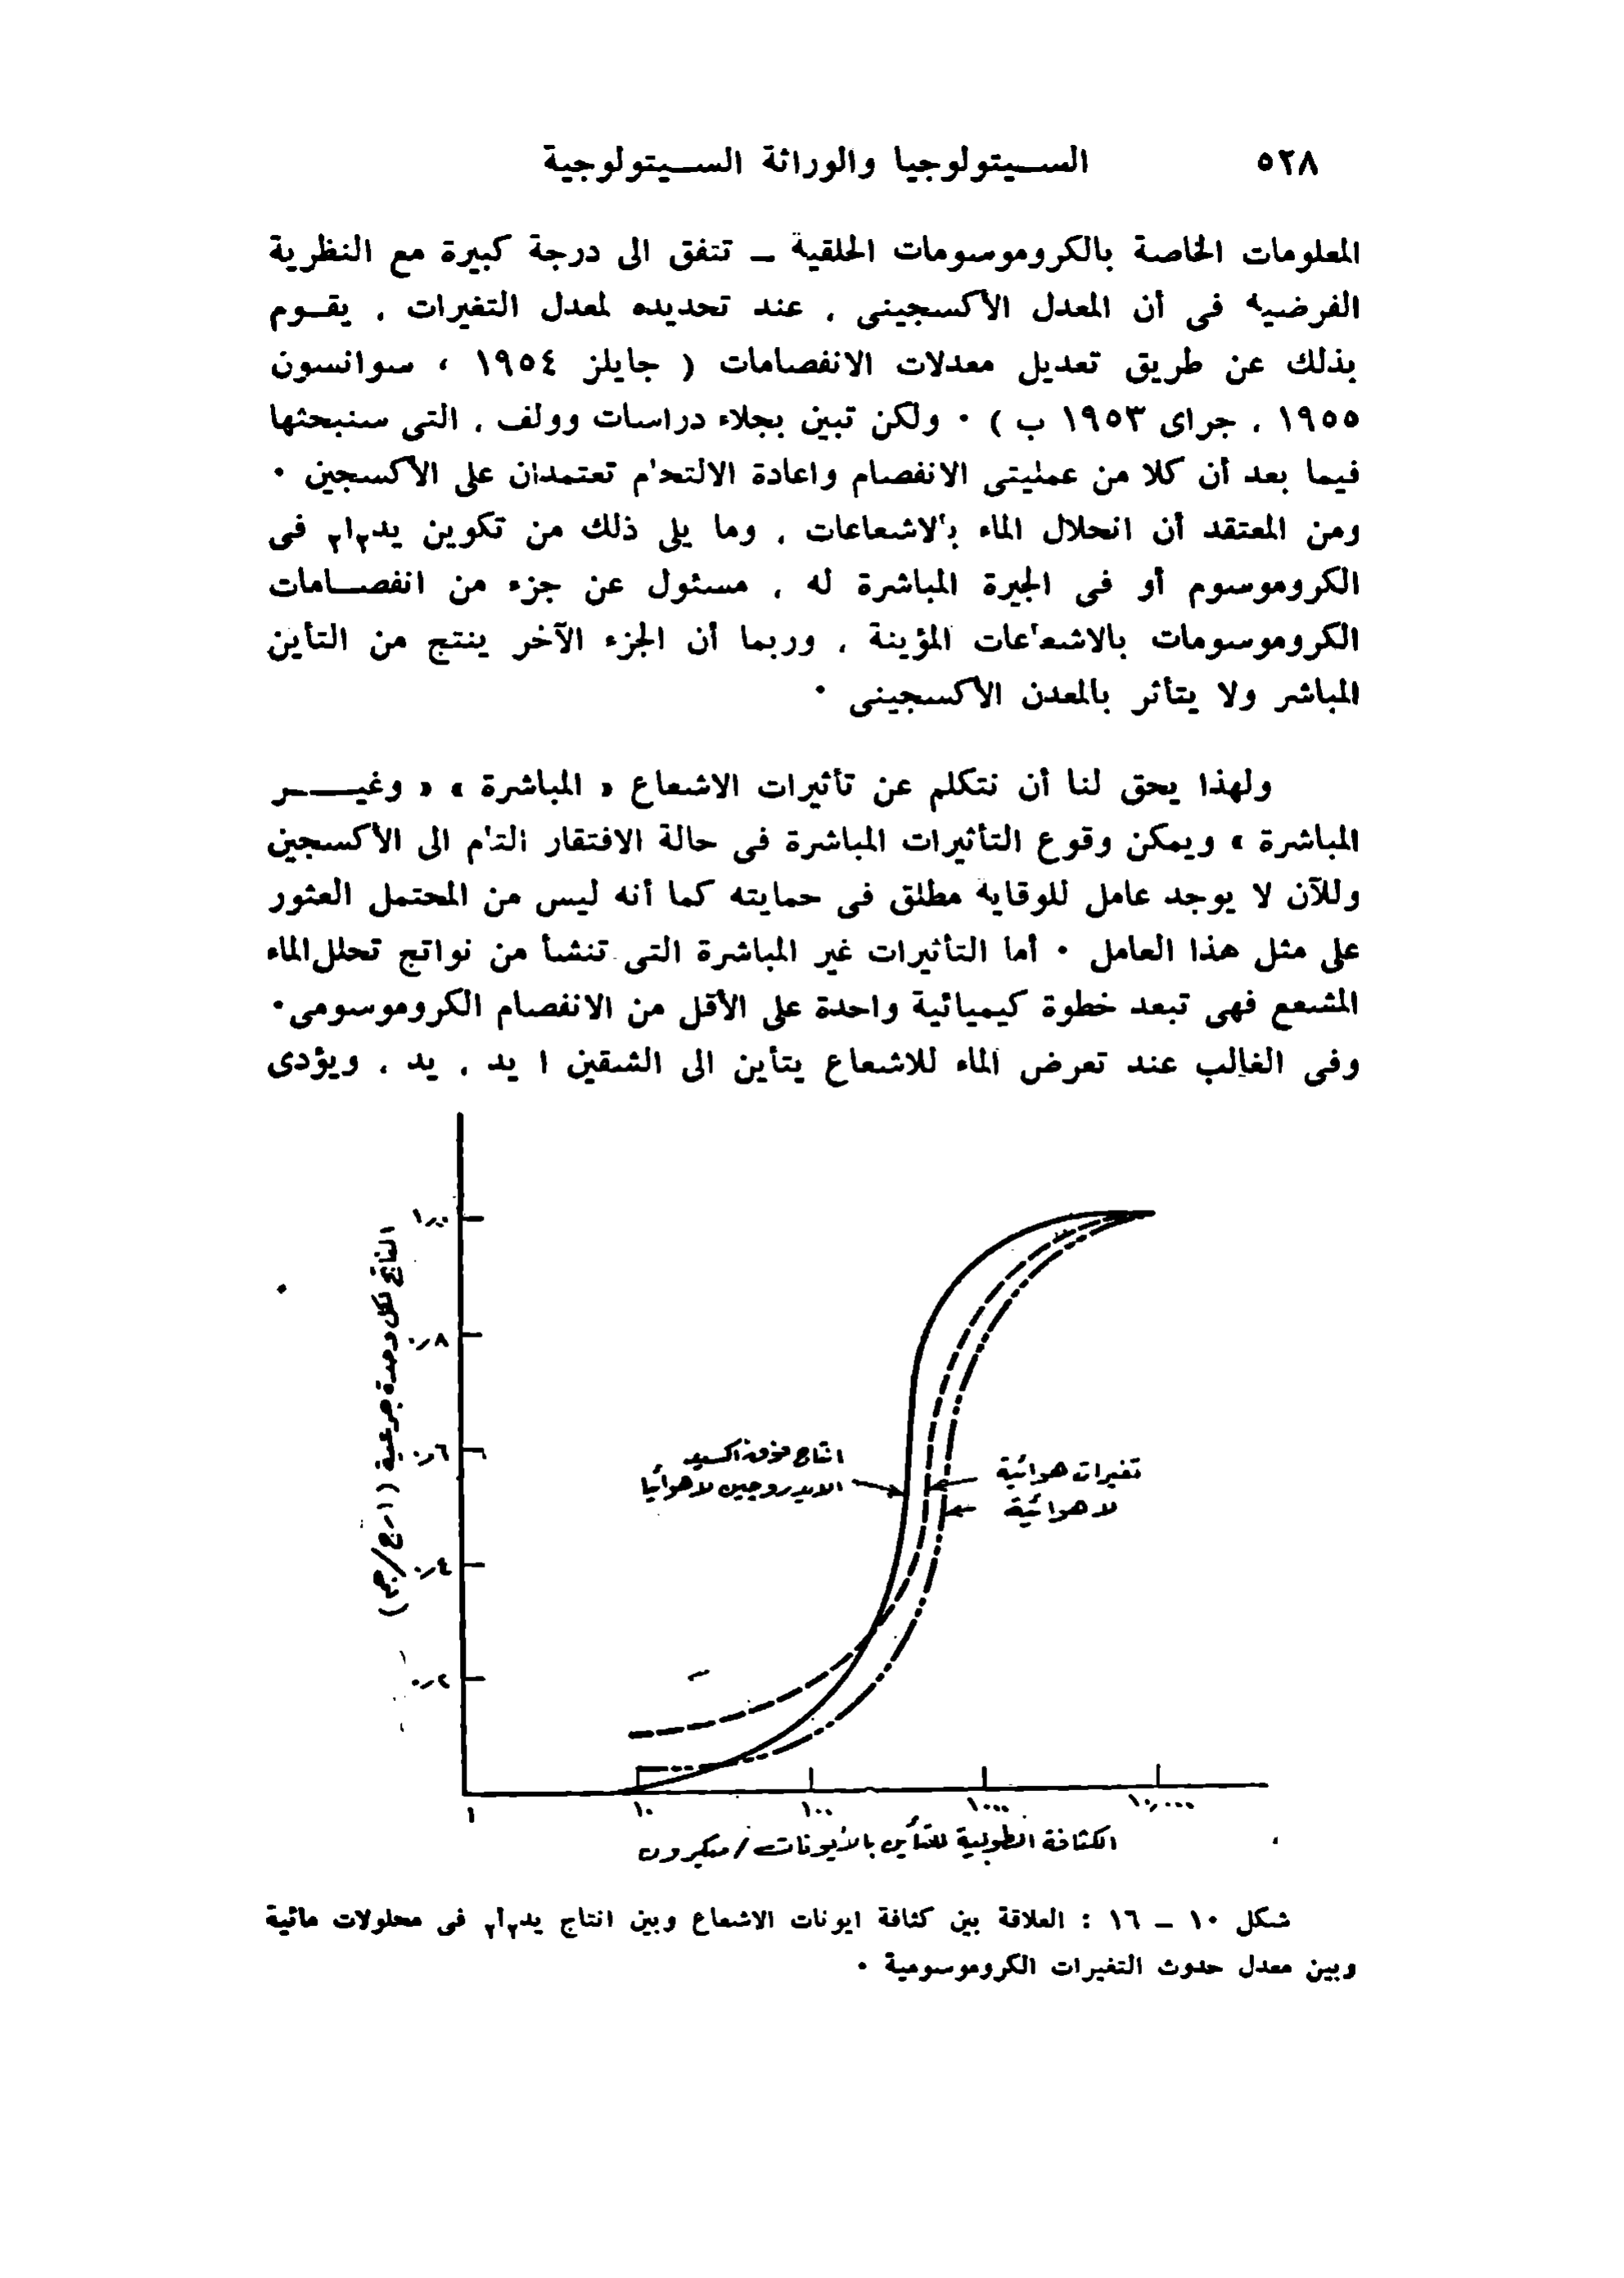 ٥٢٨ السيتولوجيا والوراثة السيتولوجية
المعلومات الخاصة بالكروموسومات الحلقية – تتفق الى درجة كبيرة مع النظرية
الفرضية فى أن المعدل الأكسجينى ، عند تحديده لمعدل التغيرات ، يقوم
بذلك عن طريق تعديل معدلات الانفصامات ( جايلز ١٩٥٤ ، سوانسون
١٩٥٥ ، جراى ١٩٥٣ ب ) ٠ ولكن تبين بجلاء دراسات وولف ، التى سنبحثها
فيما بعد أن كلا من عمليتى الانفصام واعادة الالتحام تعتمدان على الأكسجين ٠
ومن المعتقد أن انحلال الماء بالاشعاعات ، وما يلى ذلك من تكوين يد٢ا٢ فى
الكروموسوم أو فى الجيرة المباشرة له ، مسئول عن جزء من انفصامات
الكروموسومات بالاشعاعات المؤينة ، وربما أن الجزء الآخر ينتج من التأين
المباشر ولا يتأثر بالمعدن الأكسجينى ٠
ولهذا يحق لنا أن نتكلم عن تأثيرات الاشعاع « المباشرة » « وغير
المباشرة » ويمكن وقوع التأثيرات المباشرة فى حالة الافتقار التام الى الأكسجين
وللآن لا يوجد عامل للوقاية مطلق فى حمايته كما أنه ليس من المحتمل العثور
على مثل هذا العامل ٠ أما التأثيرات غير المباشرة التى تنشأ من نواتج تحلل الماء
المشعع فهى تبعد خطوة كيميائية واحدة على الأقل من الانفصام الكروموسومى٠
وفى الغالب عند تعرض الماء للاشعاع يتأين الى الشقين ا يد ، يد ، ويؤدى
الناتج لكل وحدة جرعية ( ارج/جم )
١٫٠٠
٠٫٨
٠٫٦
٠٫٤
٠٫٢
انتاج فوق اكسيد
الايدروجين لاهوائيا
تغيرات هوائية
لاهوائية
١ ١٠ ١٠٠ ١٠٠٠ ١٠٫٠٠٠
الكثافة الطولية للتأين بالأيونات / ميكرون
شكل ١٠ – ١٦ : العلاقة بين كثافة ايونات الاشعاع وبين انتاج يد٢أ٢ فى محلولات مائية
وبين معدل حدوث التغيرات الكروموسومية ٠